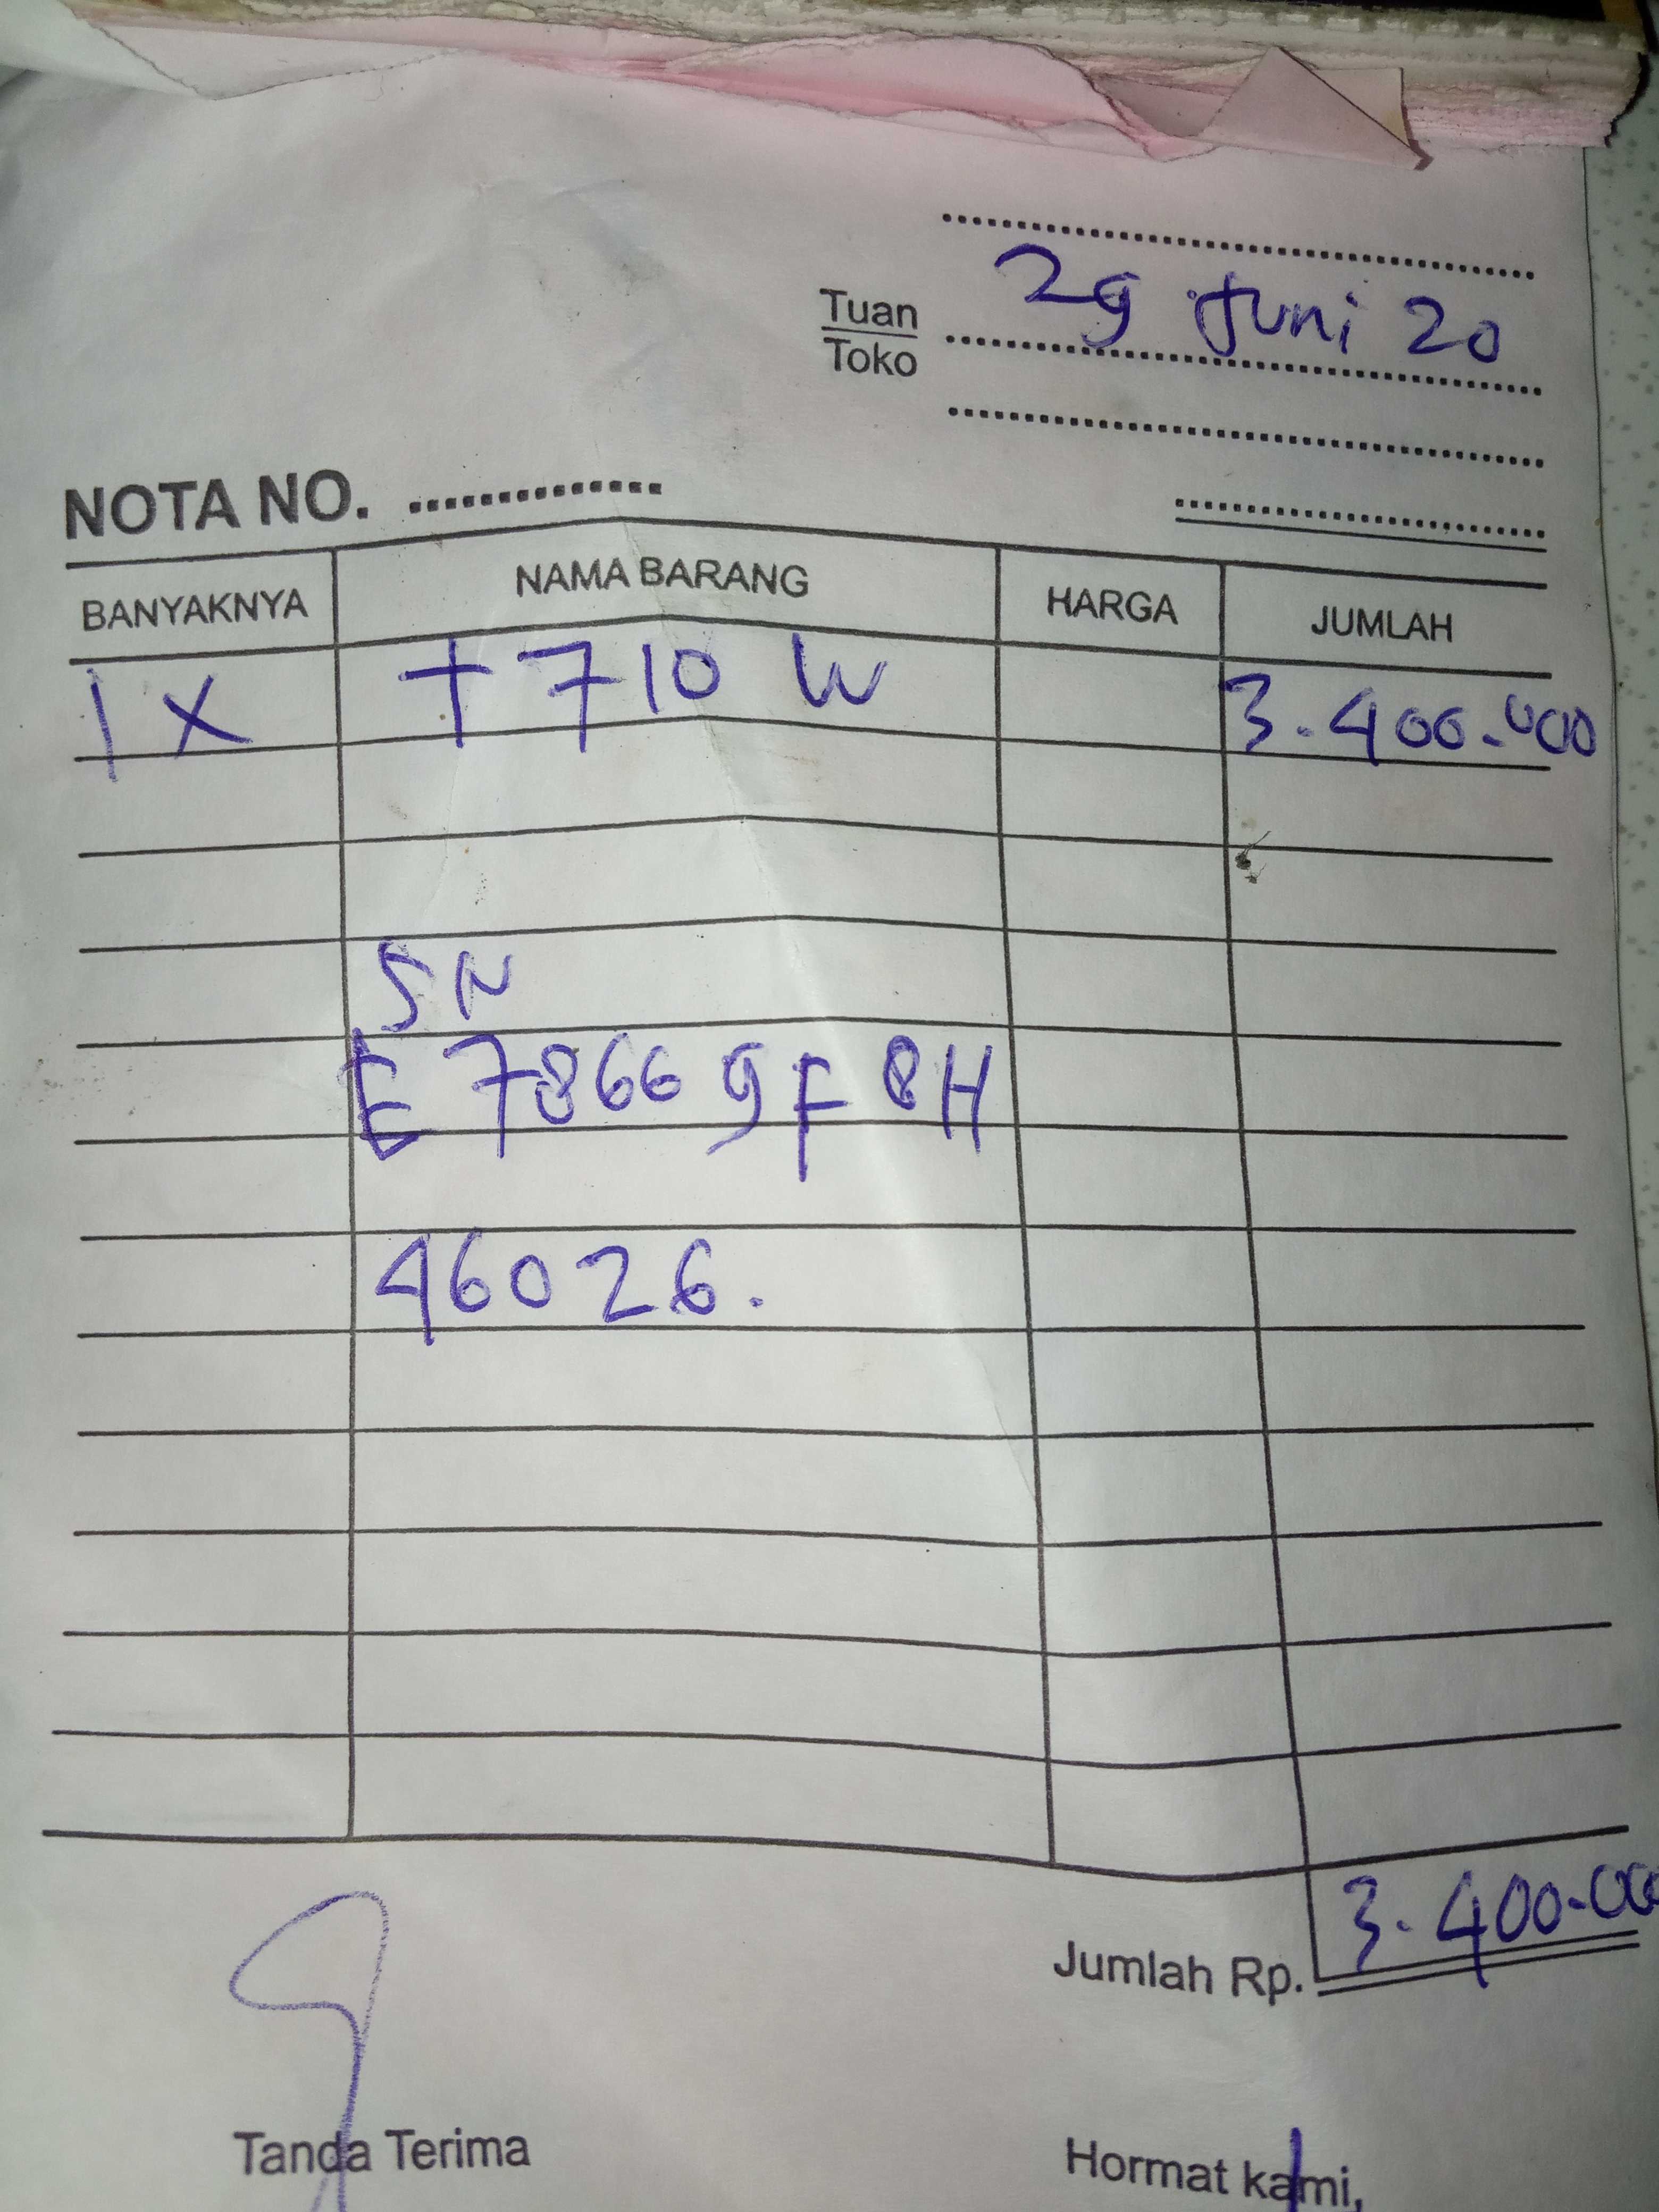 29 Juni 20
Tuan
Toko
NOTA NO.
BANYAKNYA NAMA BARANG HARGA JUMLAH
1 X T710 W 3.400.000
SN
E78669F8H
46026.
Jumlah Rp. 3.400.000
Tanda Terima Hormat kami,